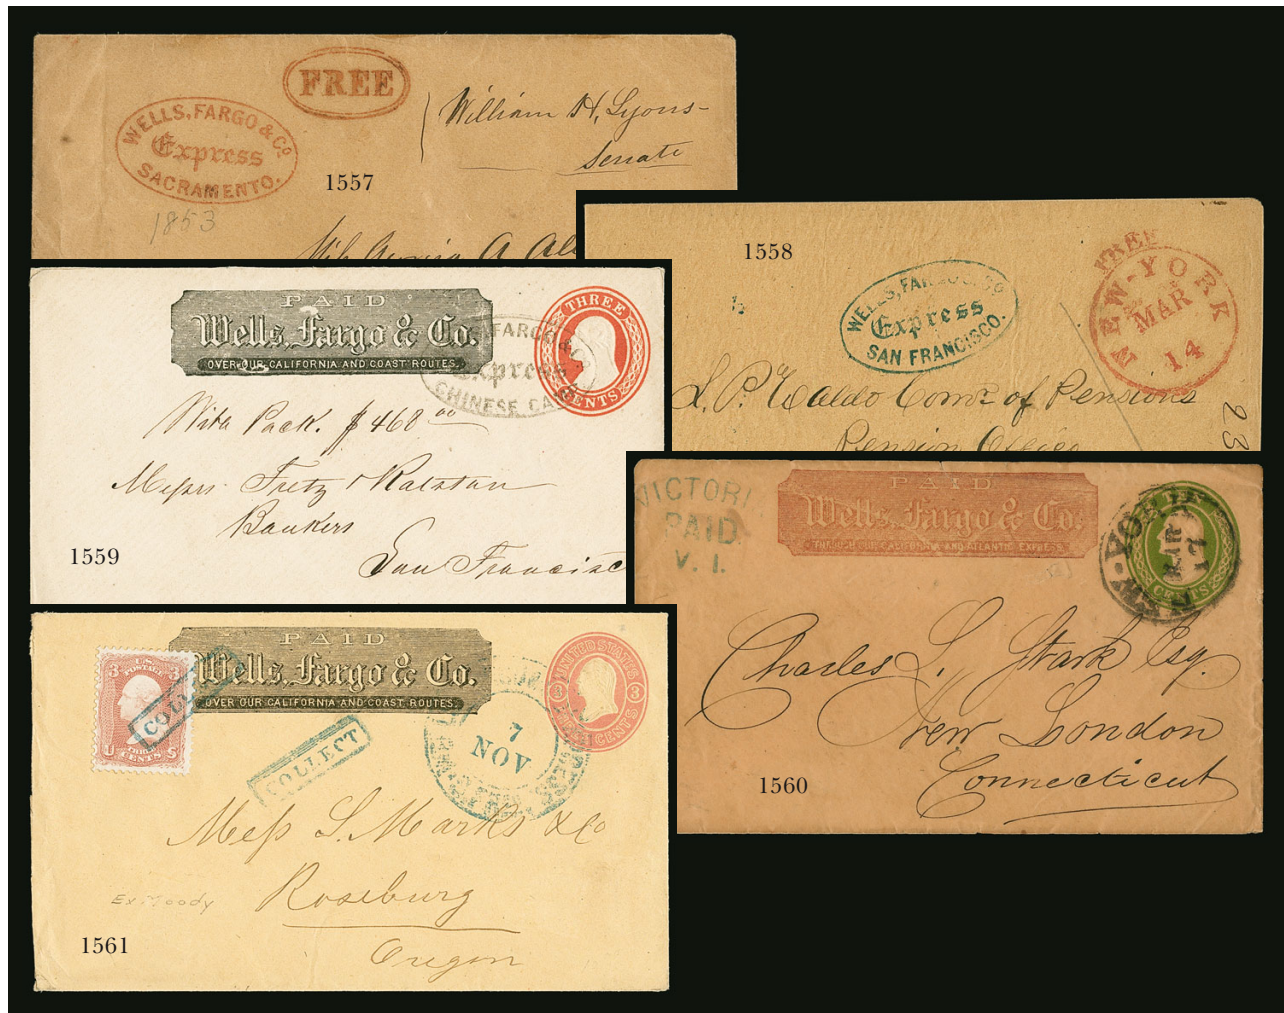 FREE
WELLS, FARGO & Co.
Express
SACRAMENTO.
William H. Lyons
Senate
1557
1853
1558
WELLS, FARGO & Co
Express
SAN FRANCISCO.
FREE
NEW-YORK
MAR
14
L. P. Waldo Comr. of Pensions
Pension Office
23
PAID
Wells, Fargo & Co.
OVER OUR CALIFORNIA AND COAST ROUTES.
THREE
CENTS
FARGO & Co
Express
CHINESE CA
With Pack. $468.00
Messrs Fretz & Ralston
Bankers
San Francisc
1559
VICTORI
PAID
V. I.
PAID
Wells, Fargo & Co.
THROUGH OUR CALIFORNIA AND ATLANTIC EXPRESS.
NEW-YORK
17
CENTS
Charles L. Stark Esq.
New London
Connecticut
1560
U.S.
POSTAGE
3 3
THREE
CENTS
U S
COLLECT
PAID
Wells, Fargo & Co.
OVER OUR CALIFORNIA AND COAST ROUTES.
UNITED STATES
3 3
CENTS
COLLECT
7
NOV
Mess S. Marks & Co
Roseburg
Oregon
Ex Moody
1561